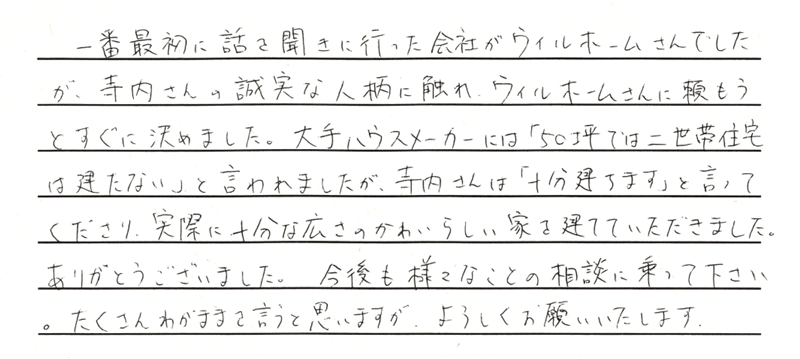 一番最初に話を聞きに行った会社がウィルホームさんでした
が、寺内さんの誠実な人柄に触れ、ウィルホームさんに頼もう
とすぐに決めました。大手ハウスメーカーには「50坪では二世帯住宅
は建たない」と言われましたが、寺内さんは「十分建ちます」と言って
くださり、実際に十分な広さのかわいらしい家を建てていただきました。
ありがとうございました。 今後も様々なことの相談に乗って下さい
。たくさんわがままを言うと思いますが、よろしくお願いいたします.